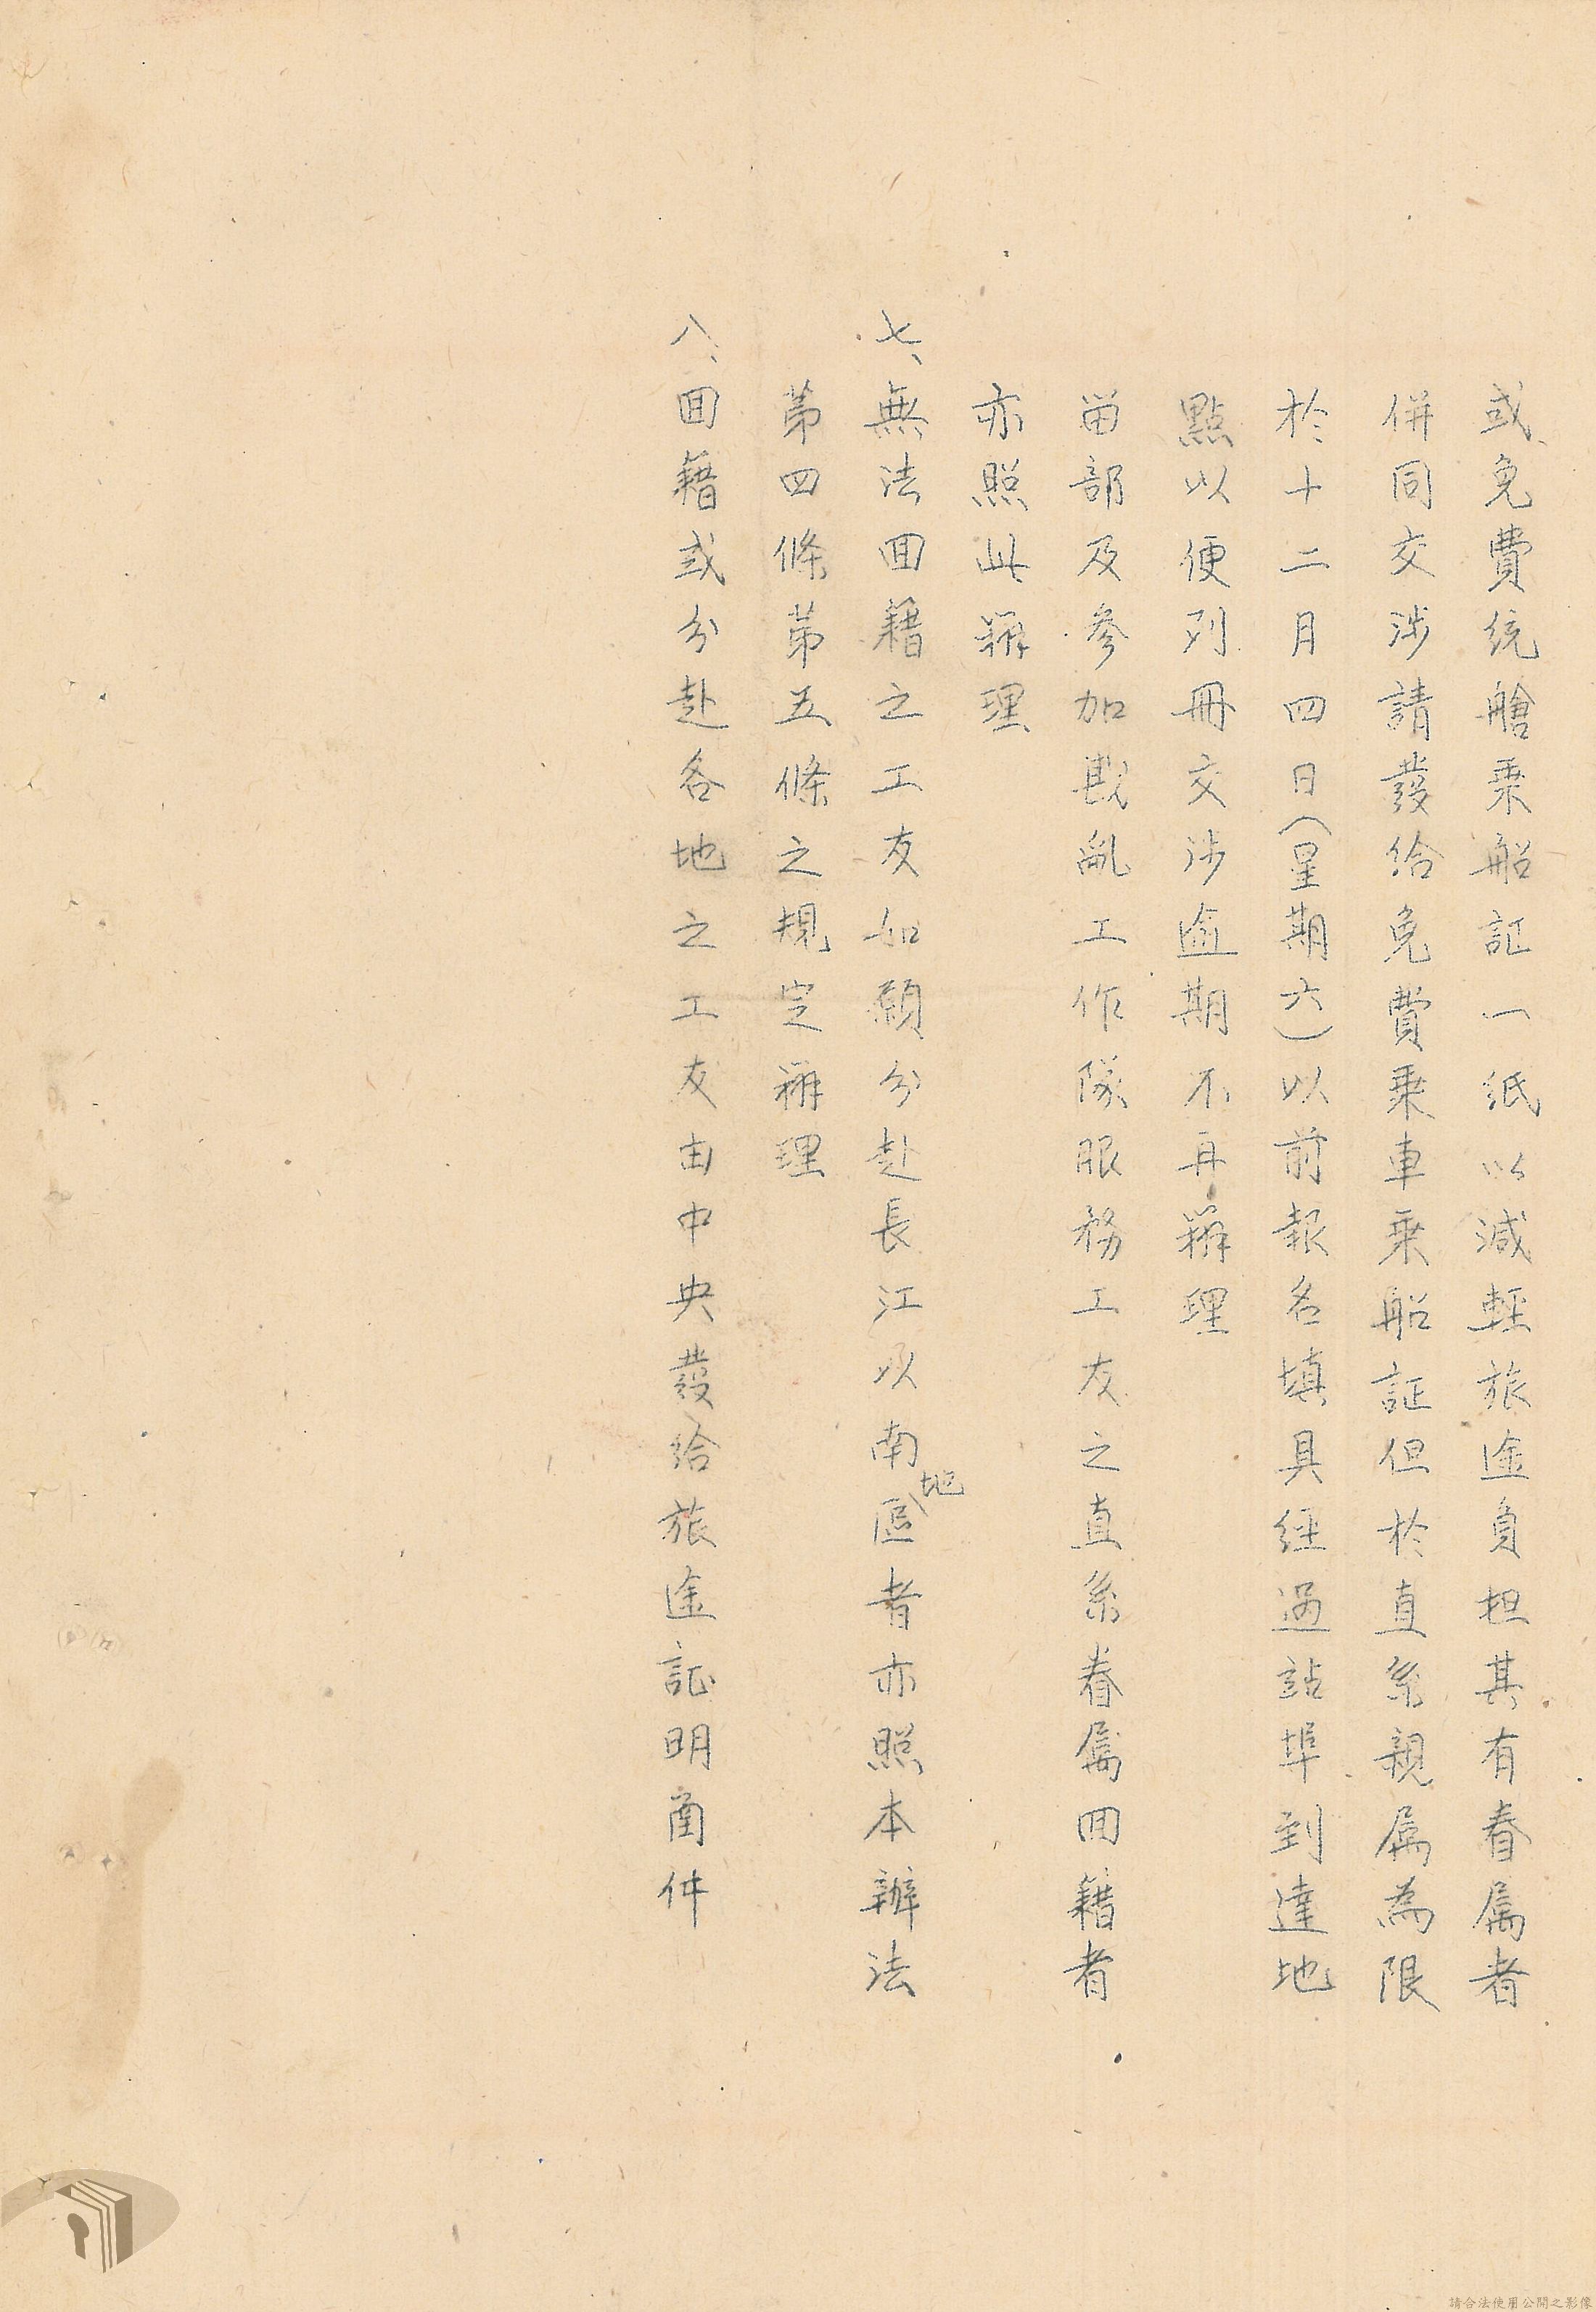 或免費統艙乘船証一紙以減輕旅途負担其有眷属者
併同交涉請發給免費乘車乘船証但於直系親属為限
於十二月四日(星期六)以前報名填具經過站埠到達地
點以便列冊交涉逾期不再辦理
留部及參加戡亂工作隊服務工友之直系眷属回籍者
亦照此辦理
七、無法回籍之工友如願分赴長江以南地區者亦照本辦法
第四條第五條之規定辦理
八、回籍或分赴各地之工友由中央發給旅途証明函件
請合法使用公開之影像